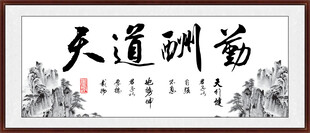 天道酬勤
天行健
君子以
自强
不息
地勢坤
君子以
厚德
載物